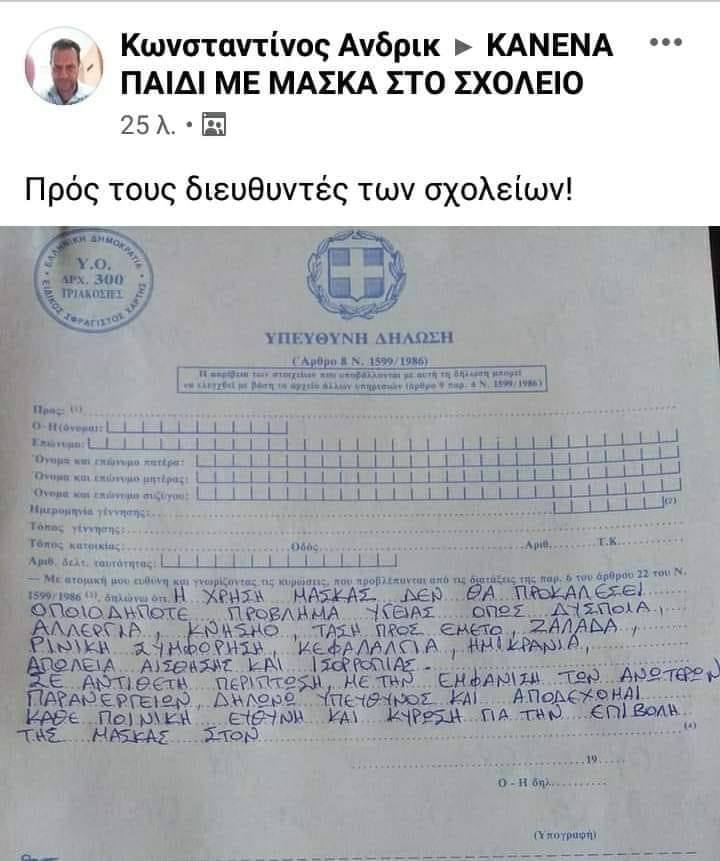 Κωνσταντίνος Ανδρικ ▸ ΚΑΝΕΝΑ
ΠΑΙΔΙ ΜΕ ΜΑΣΚΑ ΣΤΟ ΣΧΟΛΕΙΟ
25 λ.
Πρός τους διευθυντές των σχολείων!
ΕΛΛΗΝΙΚΗ ΔΗΜΟΚΡΑΤΙΑ
Υ.Ο.
ΔΡΧ. 300
ΤΡΙΑΚΟΣΙΕΣ
ΕΙΔΙΚΟΣ ΣΦΡΑΓΙΣΤΟΣ ΧΑΡΤΗΣ
ΥΠΕΥΘΥΝΗ ΔΗΛΩΣΗ
(Άρθρο 8 Ν. 1599/1986)
Η ακρίβεια των στοιχείων που υποβάλλονται με αυτή τη δήλωση μπορεί
να ελεγχθεί με βάση το αρχείο άλλων υπηρεσιών (άρθρο 8 παρ. 4 Ν. 1599/1986)
Προς: (1)
Ο-Η (όνομα):
Επώνυμο:
Όνομα και επώνυμο πατέρα:
Όνομα και επώνυμο μητέρας:
Όνομα και επώνυμο συζύγου:
Ημερομηνία γέννησης: (2)
Τόπος γέννησης:
Τόπος κατοικίας: Οδός Αριθ. Τ.Κ.
Αριθ. δελτ. ταυτότητας:
— Με ατομική μου ευθύνη και γνωρίζοντας τις κυρώσεις, που προβλέπονται από τις διατάξεις της παρ. 6 του άρθρου 22 του Ν.
1599/1986 (3), δηλώνω ότι: Η ΧΡΗΣΗ ΜΑΣΚΑΣ ΔΕΝ ΘΑ ΠΡΟΚΑΛΕΣΕΙ
ΟΠΟΙΟΔΗΠΟΤΕ ΠΡΟΒΛΗΜΑ ΥΓΕΙΑΣ ΟΠΩΣ ΔΥΣΠΟΙΑ,
ΑΛΛΕΡΓΙΑ, ΚΝΗΣΜΟ, ΤΑΣΗ ΠΡΟΣ ΕΜΕΤΟ, ΖΑΛΑΔΑ,
ΡΙΝΙΚΗ ΣΥΜΦΟΡΗΣΗ, ΚΕΦΑΛΑΛΓΙΑ, ΗΜΙΚΡΑΝΙΑ,
ΑΠΩΛΕΙΑ ΑΙΣΘΗΣΗΣ ΚΑΙ ΙΣΟΡΡΟΠΙΑΣ.
ΣΕ ΑΝΤΙΘΕΤΗ ΠΕΡΙΠΤΩΣΗ, ΜΕ ΤΗΝ ΕΜΦΑΝΙΣΗ ΤΩΝ ΑΝΩΤΕΡΩΝ
ΠΑΡΑΝΕΡΓΕΙΩΝ, ΔΗΛΩΝΩ ΥΠΕΥΘΥΝΟΣ ΚΑΙ ΑΠΟΔΕΧΟΜΑΙ
ΚΑΘΕ ΠΟΙΝΙΚΗ ΕΥΘΥΝΗ ΚΑΙ ΚΥΡΩΣΗ ΓΙΑ ΤΗΝ ΕΠΙΒΟΛΗ
ΤΗΣ ΜΑΣΚΑΣ ΣΤΟΝ (4)
19
Ο - Η δηλ.
(Υπογραφή)